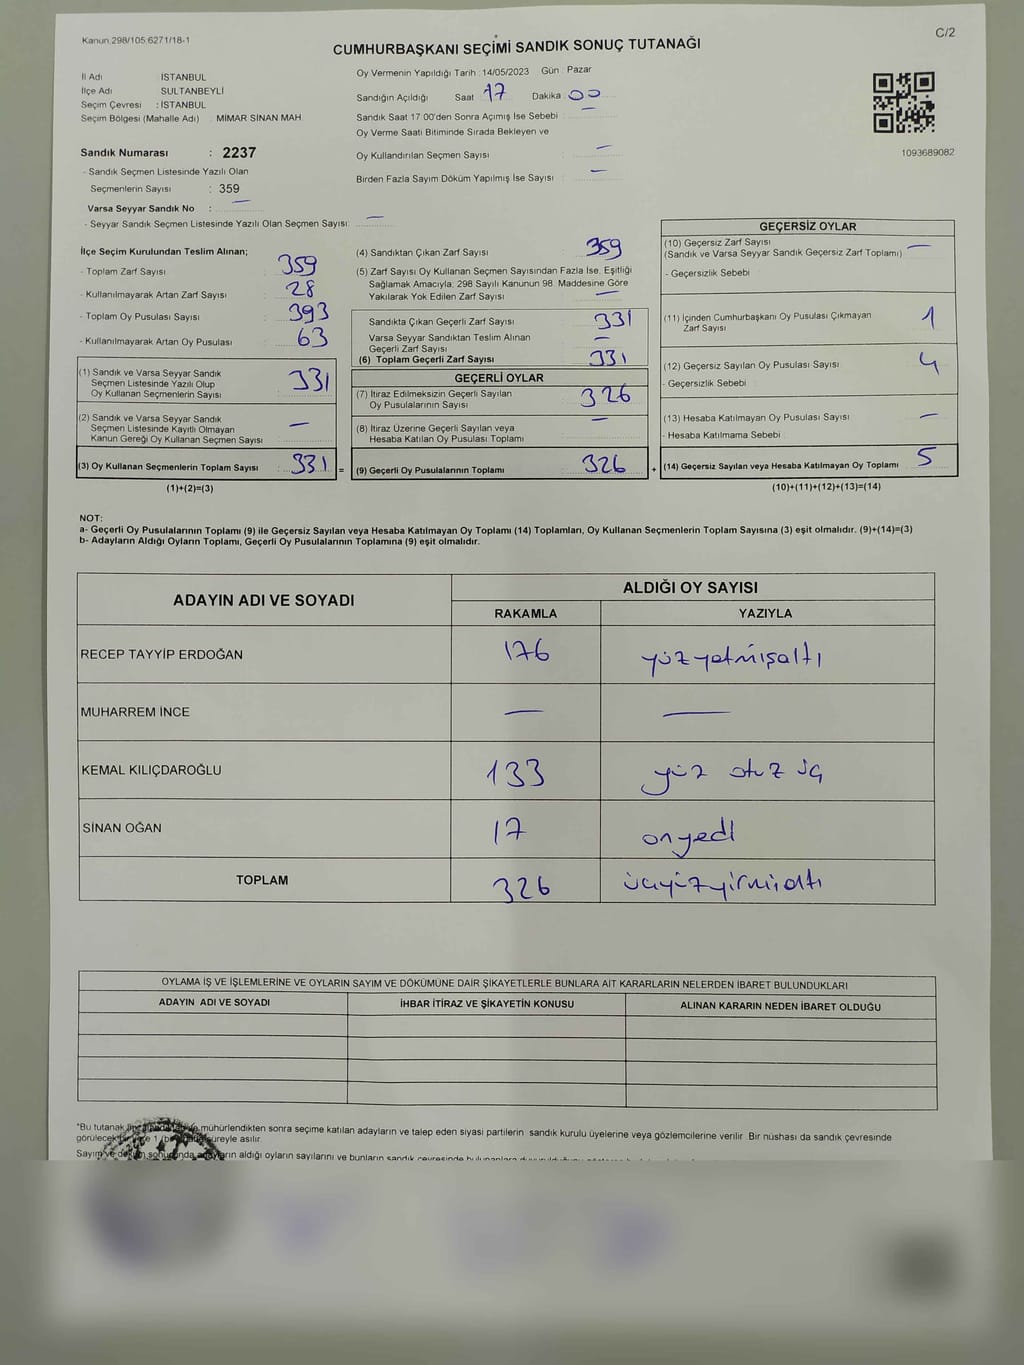 Kanun 298/105,6271/18-1
C/2
CUMHURBAŞKANI SEÇİMİ SANDIK SONUÇ TUTANAĞI
İl Adı : İSTANBUL
İlçe Adı : SULTANBEYLİ
Seçim Çevresi : İSTANBUL
Seçim Bölgesi (Mahalle Adı) : MİMAR SİNAN MAH.
Oy Vermenin Yapıldığı Tarih : 14/05/2023 Gün : Pazar
Sandığın Açıldığı Saat 17 Dakika 00
Sandık Saat 17.00'den Sonra Açımış İse Sebebi : —
Oy Verme Saati Bitiminde Sırada Bekleyen ve
Oy Kullandırılan Seçmen Sayısı : —
Birden Fazla Sayım Döküm Yapılmış İse Sayısı : —
1093689082
Sandık Numarası : 2237
- Sandık Seçmen Listesinde Yazılı Olan
Seçmenlerin Sayısı : 359
Varsa Seyyar Sandık No : —
- Seyyar Sandık Seçmen Listesinde Yazılı Olan Seçmen Sayısı: —
İlçe Seçim Kurulundan Teslim Alınan;
- Toplam Zarf Sayısı : 359
- Kullanılmayarak Artan Zarf Sayısı : 28
- Toplam Oy Pusulası Sayısı : 393
- Kullanılmayarak Artan Oy Pusulası : 63
(1) Sandık ve Varsa Seyyar Sandık
Seçmen Listesinde Yazılı Olup
Oy Kullanan Seçmenlerin Sayısı 331
(2) Sandık ve Varsa Seyyar Sandık
Seçmen Listesinde Kayıtlı Olmayan
Kanun Gereği Oy Kullanan Seçmen Sayısı —
(3) Oy Kullanan Seçmenlerin Toplam Sayısı 331 =
(1)+(2)=(3)
(4) Sandıktan Çıkan Zarf Sayısı : 359
(5) Zarf Sayısı Oy Kullanan Seçmen Sayısından Fazla İse, Eşitliği
Sağlamak Amacıyla; 298 Sayılı Kanunun 98. Maddesine Göre
Yakılarak Yok Edilen Zarf Sayısı : —
Sandıkta Çıkan Geçerli Zarf Sayısı 331
Varsa Seyyar Sandıktan Teslim Alınan
Geçerli Zarf Sayısı —
(6) Toplam Geçerli Zarf Sayısı 331
GEÇERLİ OYLAR
(7) İtiraz Edilmeksizin Geçerli Sayılan
Oy Pusulalarının Sayısı 326
(8) İtiraz Üzerine Geçerli Sayılan veya
Hesaba Katılan Oy Pusulası Toplamı —
(9) Geçerli Oy Pusulalarının Toplamı 326 +
GEÇERSİZ OYLAR
(10) Geçersiz Zarf Sayısı
(Sandık ve Varsa Seyyar Sandık Geçersiz Zarf Toplamı) —
- Geçersizlik Sebebi
(11) İçinden Cumhurbaşkanı Oy Pusulası Çıkmayan
Zarf Sayısı 1
(12) Geçersiz Sayılan Oy Pusulası Sayısı 4
- Geçersizlik Sebebi
(13) Hesaba Katılmayan Oy Pusulası Sayısı —
- Hesaba Katılmama Sebebi
(14) Geçersiz Sayılan veya Hesaba Katılmayan Oy Toplamı 5
(10)+(11)+(12)+(13)=(14)
NOT:
a- Geçerli Oy Pusulalarının Toplamı (9) ile Geçersiz Sayılan veya Hesaba Katılmayan Oy Toplamı (14) Toplamları, Oy Kullanan Seçmenlerin Toplam Sayısına (3) eşit olmalıdır. (9)+(14)=(3)
b- Adayların Aldığı Oyların Toplamı, Geçerli Oy Pusulalarının Toplamına (9) eşit olmalıdır.
ADAYIN ADI VE SOYADI
ALDIĞI OY SAYISI
RAKAMLA YAZIYLA
RECEP TAYYİP ERDOĞAN 176 yüzyetmişaltı
MUHARREM İNCE — —
KEMAL KILIÇDAROĞLU 133 yüz otuz üç
SİNAN OĞAN 17 onyedi
TOPLAM 326 üçyüzyirmialtı
OYLAMA İŞ VE İŞLEMLERİNE VE OYLARIN SAYIM VE DÖKÜMÜNE DAİR ŞİKAYETLERLE BUNLARA AİT KARARLARIN NELERDEN İBARET BULUNDUKLARI
ADAYIN ADI VE SOYADI İHBAR İTİRAZ VE ŞİKAYETİN KONUSU ALINAN KARARIN NEDEN İBARET OLDUĞU
*Bu tutanak mühürlendikten sonra seçime katılan adayların ve talep eden siyasi partilerin sandık kurulu üyelerine veya gözlemcilerine verilir. Bir nüshası da sandık çevresinde
süreyle asılır.
Sayım ve döküm sonucunda adayların aldığı oyların sayılarını ve bunların sandık çevresinde